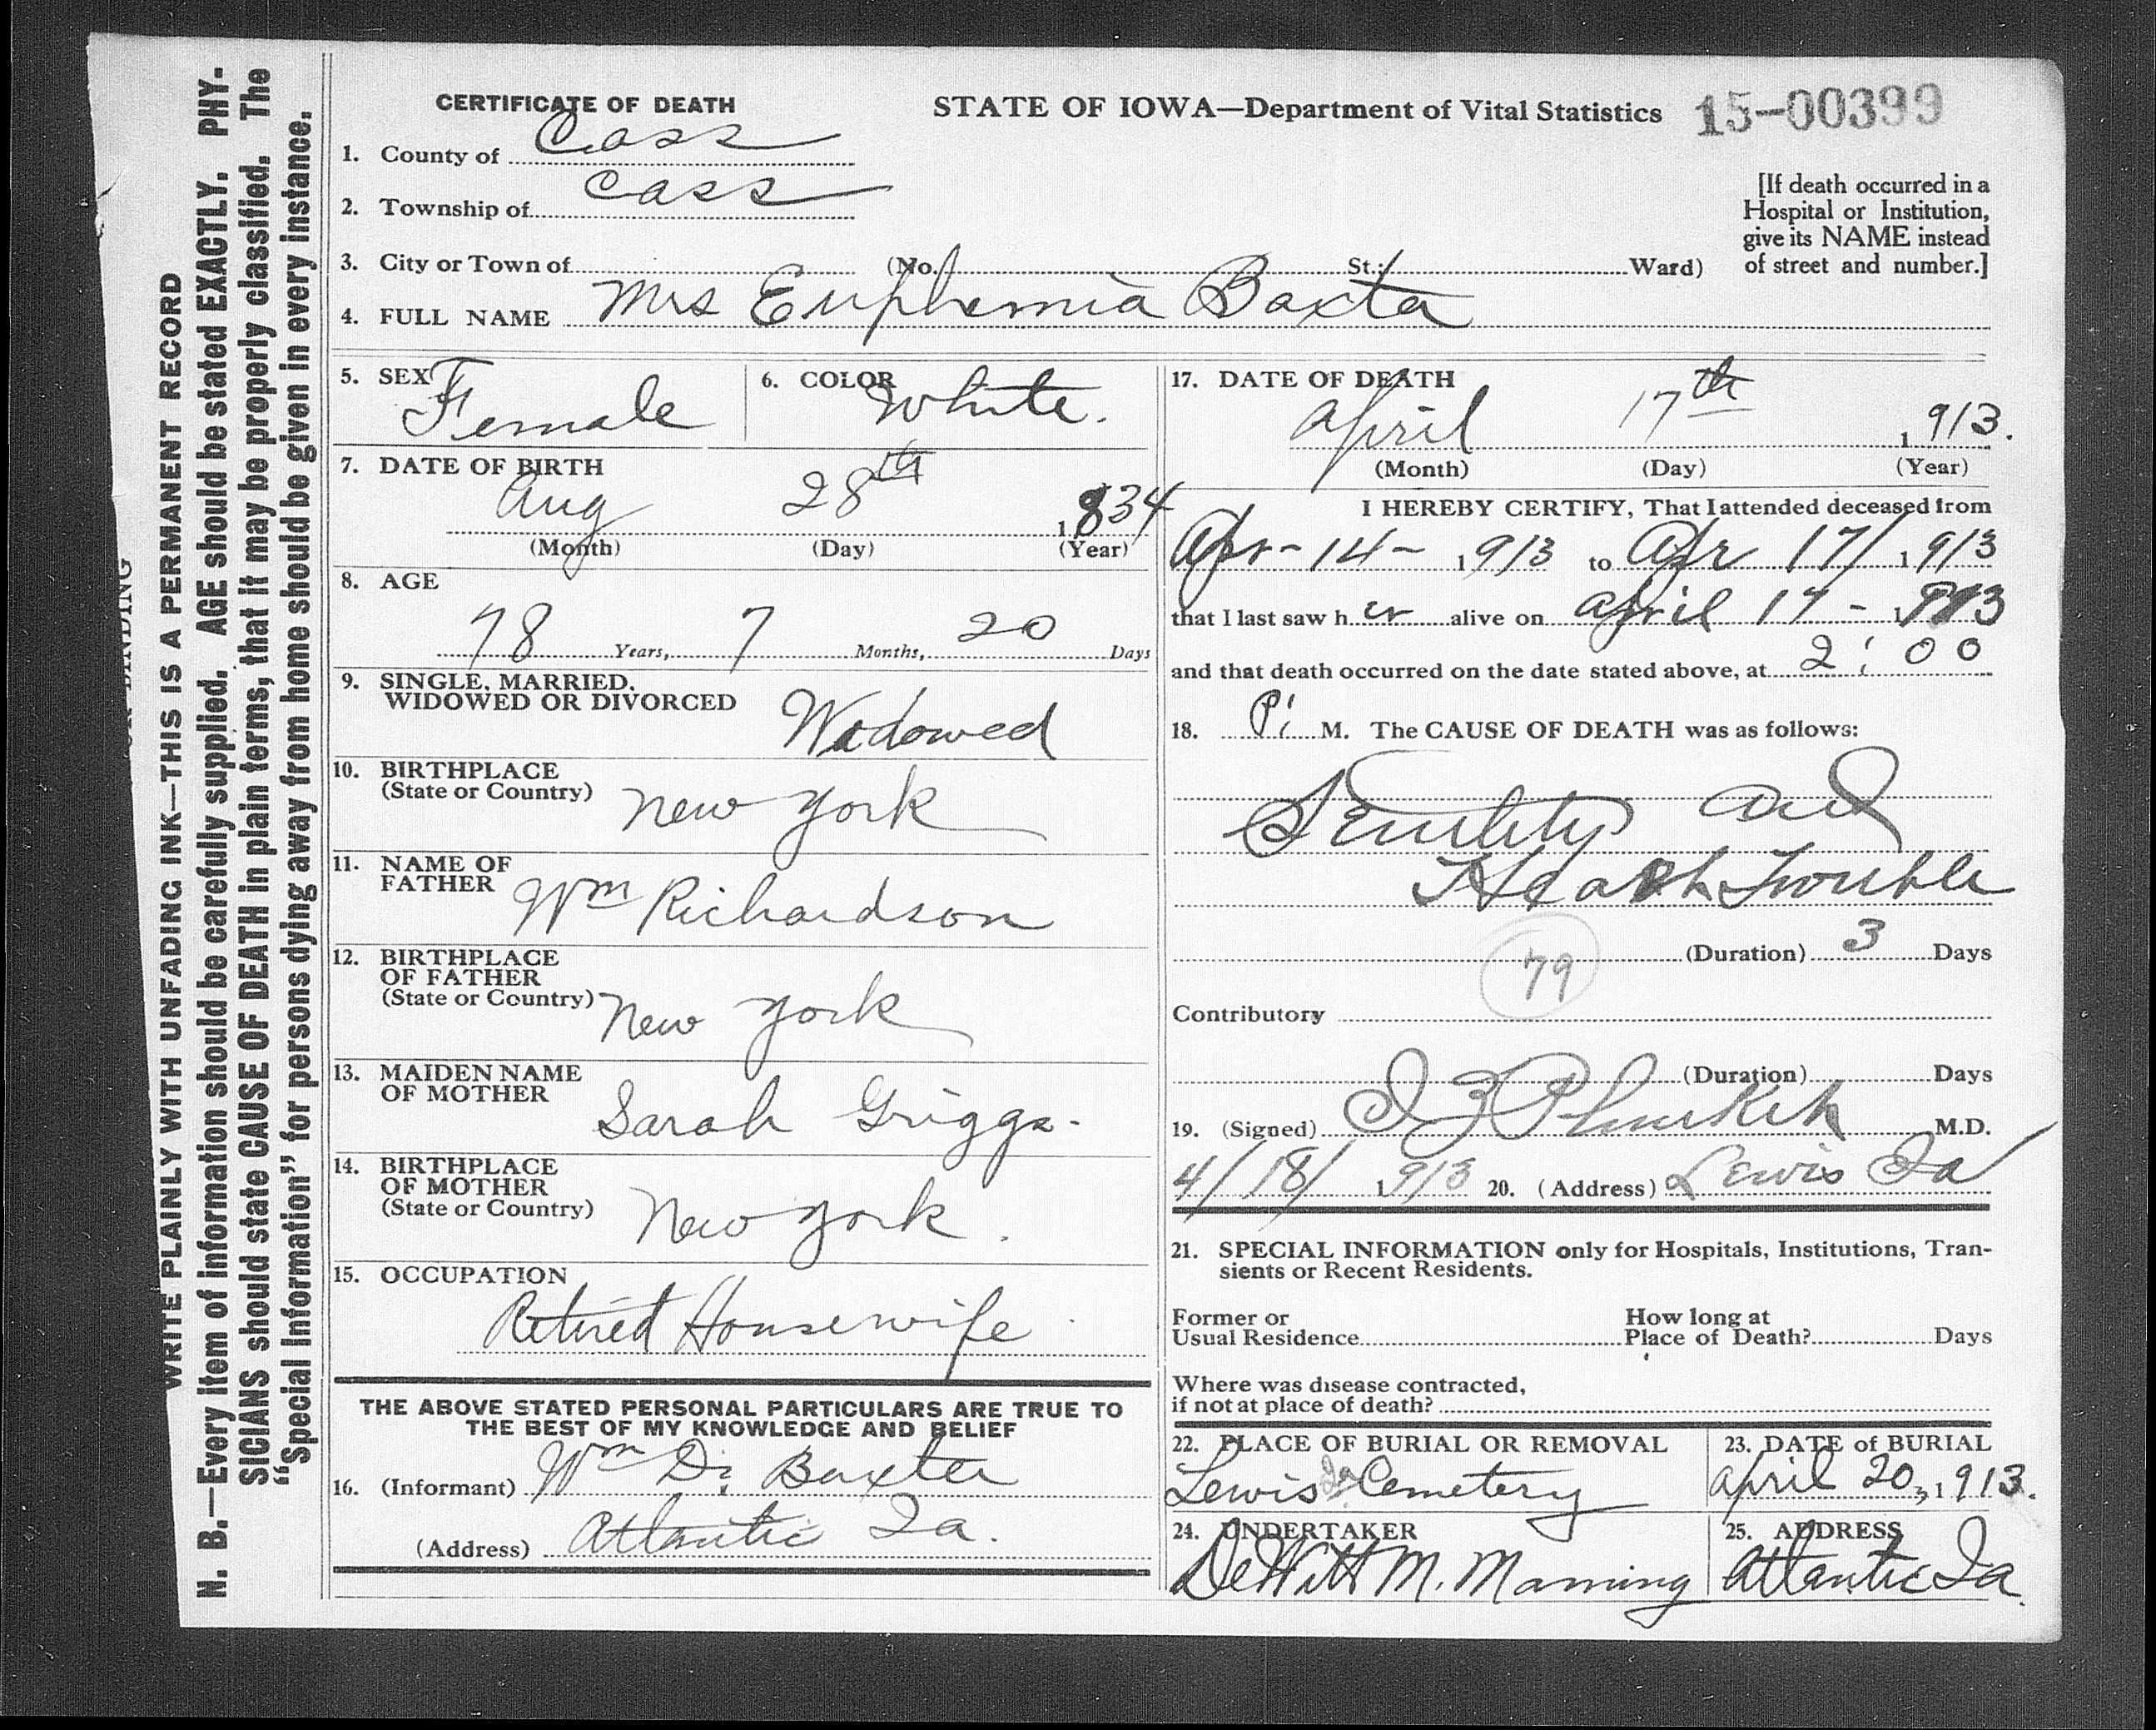 WRITE PLAINLY WITH UNFADING INK—THIS IS A PERMANENT RECORD
N. B.—Every item of information should be carefully supplied. AGE should be stated EXACTLY. PHY-
SICIANS should state CAUSE OF DEATH in plain terms, that it may be properly classified. The
“Special Information” for persons dying away from home should be given in every instance.
CERTIFICATE OF DEATH
STATE OF IOWA—Department of Vital Statistics 15-00399
1. County of Cass
2. Township of Cass
[If death occurred in a
Hospital or Institution,
give its NAME instead
of street and number.]
3. City or Town of (No. St.; Ward)
4. FULL NAME Mrs Euphemia Baxta
5. SEX Female
6. COLOR White.
7. DATE OF BIRTH
Aug 28th 1834
(Month) (Day) (Year)
8. AGE
78 Years, 7 Months, 20 Days
9. SINGLE, MARRIED,
WIDOWED OR DIVORCED Widowed
10. BIRTHPLACE
(State or Country) New York
11. NAME OF
FATHER Wm Richardson
12. BIRTHPLACE
OF FATHER
(State or Country) New York
13. MAIDEN NAME
OF MOTHER Sarah Griggs.
14. BIRTHPLACE
OF MOTHER
(State or Country) New York.
15. OCCUPATION
Retired Housewife
THE ABOVE STATED PERSONAL PARTICULARS ARE TRUE TO
THE BEST OF MY KNOWLEDGE AND BELIEF
16. (Informant) Wm D. Baxter
(Address) Atlantic Ia.
17. DATE OF DEATH
April 17th 1913.
(Month) (Day) (Year)
I HEREBY CERTIFY, That I attended deceased from
Apr-14- 1913 to Apr 17/ 1913
that I last saw her alive on April 17- 1913
and that death occurred on the date stated above, at 2:00
18. P. M. The CAUSE OF DEATH was as follows:
Senility and
Heart Trouble
(Duration) 3 Days
79
Contributory
(Duration) Days
19. (Signed) M.D.
4/18/ 1913 20. (Address) Lewis Ia
21. SPECIAL INFORMATION only for Hospitals, Institutions, Tran-
sients or Recent Residents.
Former or
Usual Residence
How long at
Place of Death? Days
Where was disease contracted,
if not at place of death?
22. PLACE OF BURIAL OR REMOVAL
Lewis Ia Cemetery
23. DATE of BURIAL
April 20, 1913.
24. UNDERTAKER
DeWitt M. Manning
25. ADDRESS
Atlantic Ia.